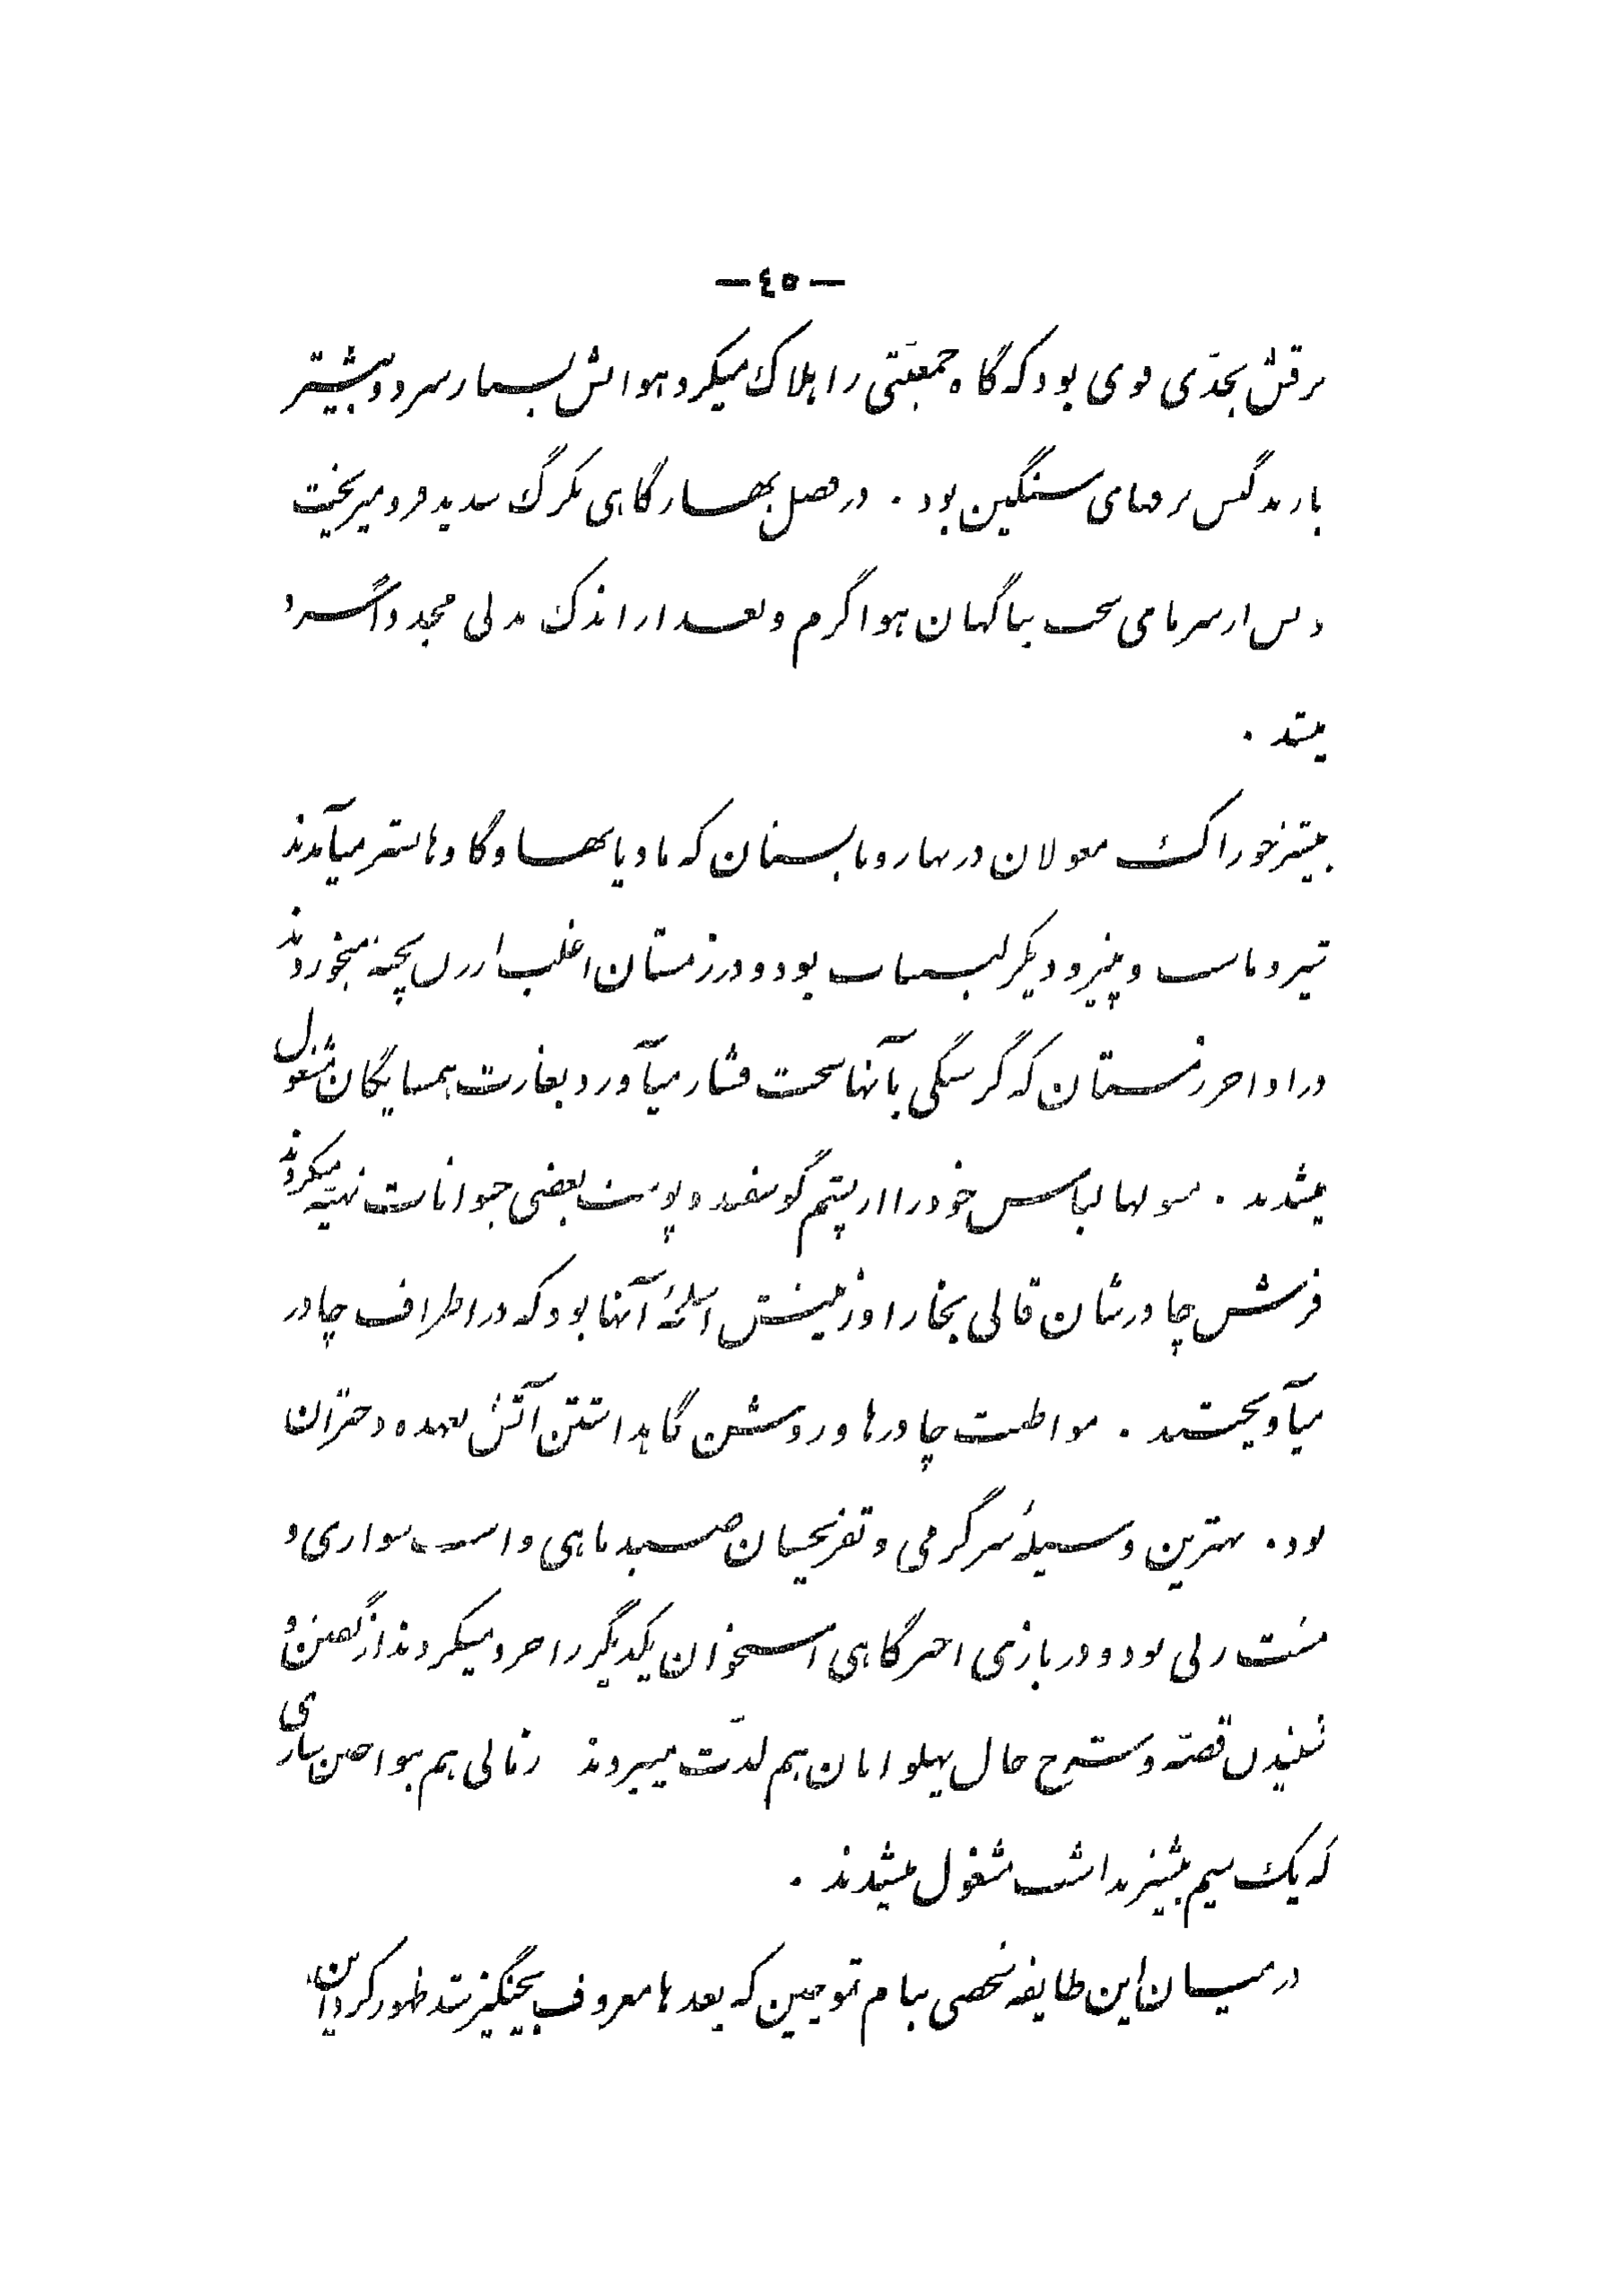 — ٤٥ —
برقش بحدّی قوی بود که گاه جمعیّتی را هلاک میکرد هوایش بسیار سرد و بیشتر
بارندگیش برفهای سنگین بود . در فصل بهار گاهی تگرگ شدید فرو میریخت
و پس از سرمای سخت بناگهان هوا گرم و بعد از اندک مدتی مجدداً سرد
میشد .
بیشتر خوراک مغولان در بهار و تابستان که مادیانها و گاوها بشیر میآمدند
شیر و ماست و پنیر و دیگر لبنیات بود و در زمستان اغلب ارزن پخته میخوردند
در اواخر زمستان که گرسنگی بآنها سخت فشار میآورد بغارت همسایگان مشغول
میشدند . مغولها لباس خود را از پشم گوسفند و پوست بعضی حیوانات تهیّه میکردند
فرش چادرشان قالی بخارا و زینتش اسلحهٔ آنها بود که در اطراف چادر
میآویختند . مواظبت چادرها و روشن نگاهداشتن آتش بعهده دختران
بود . بهترین وسیلهٔ سرگرمی و تفریحیشان صید ماهی و اسب سواری و
مشت زنی بود و در بازی اخیر گاهی استخوان یکدیگر را خرد میکردند از گفتن و
شنیدن قصّه و شرح حال پهلوانان هم لذّت میبردند زمانی هم بنواختن سازی
که یک سیم بیشتر نداشت مشغول میشدند .
در میان این طایفه شخصی بنام تموچین که بعدها معروف بچنگیز شد ظهور کرد این